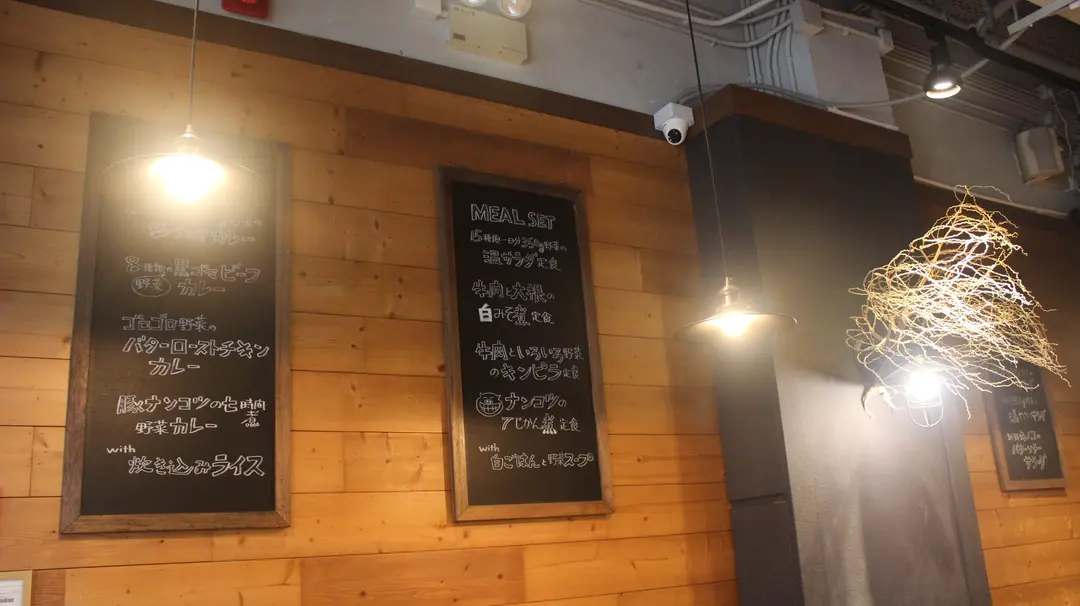 カレー
8種類の黒ゴマビーフ
野菜 カレー
ゴロゴロ野菜の
バターローストチキン
カレー
豚ナンコツの七時間煮
野菜カレー
with
炊き込みライス
MEAL SET
15種類一日分350g野菜の
温サラダ定食
牛肉と大根の
白みそ煮定食
牛肉といろいろ野菜
のキンピラ定食
ナンコツの
7じかん煮定食
with
白ごはんと野菜スープ
サラダ